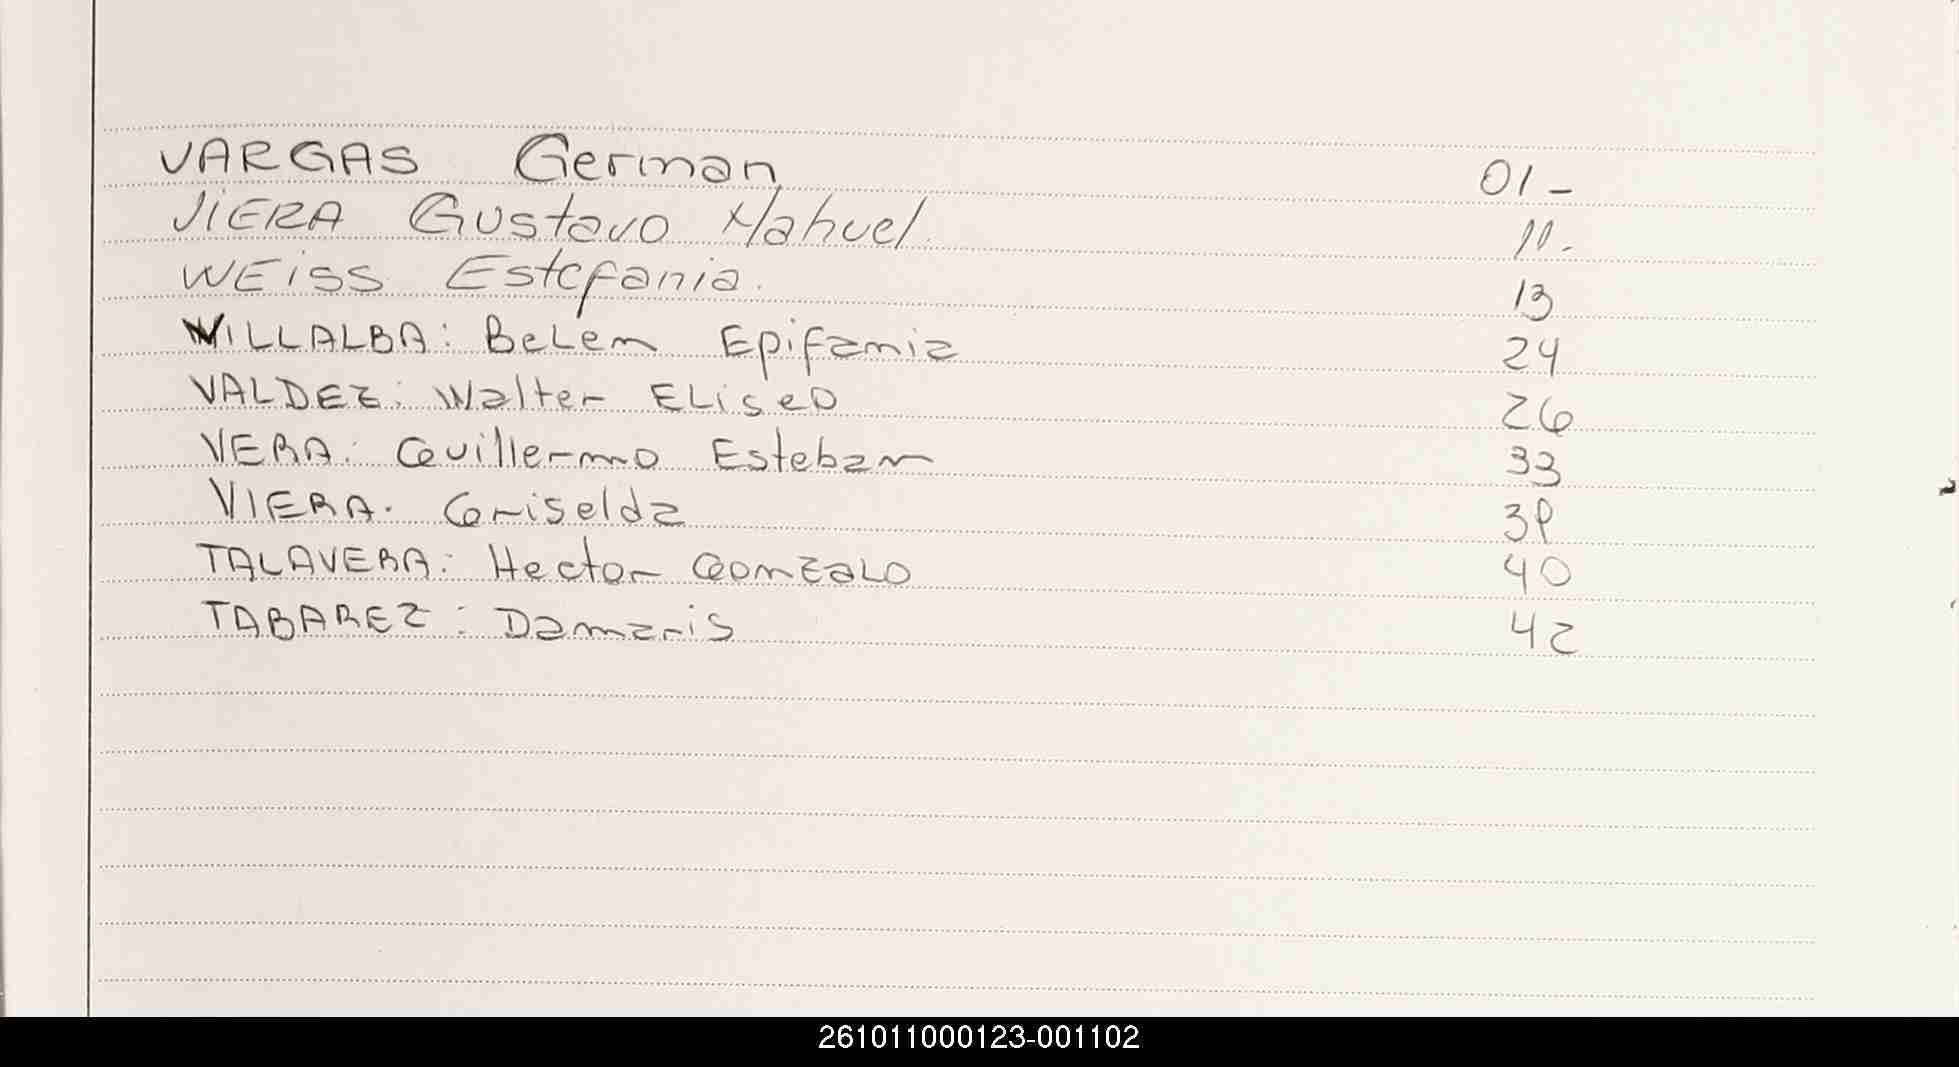 VARGAS German 01-
VIERA Gustavo Nahuel. 11-
WEISS Estefania. 13
WILLALBA: Belem Epifania 24
VALDEZ: Walter ELiseo 26
VERA: Guillermo Esteban 33
VIERA. Griselda 39
TALAVERA: Hector GonzaLo 40
TABAREZ: Damaris 42
261011000123-001102